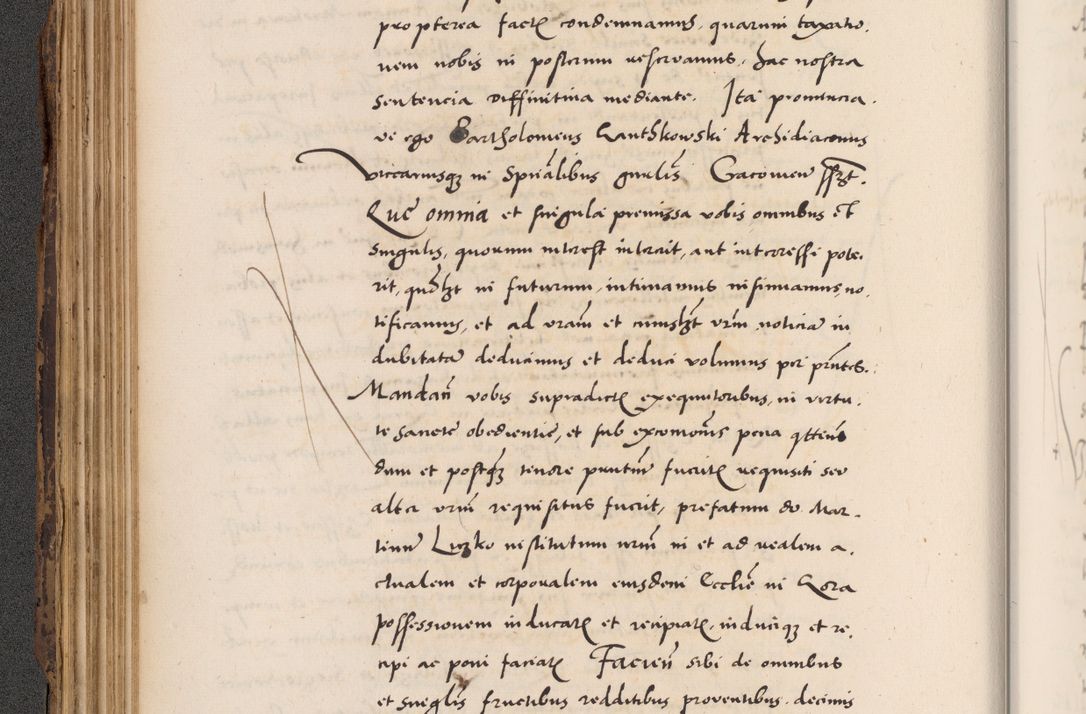 propterea factis condemnamus, quarum taxatio,
nem nobis in posterum reservamus, hac nostra
sententia diffinitiva mediante. Ita pronuncia,
vi ego Bartholomeus Ganthkowski Archidiaconus
vicariusqz in Spiritualibus gnralis Cracovien sst.
Que omnia et singula premissa vobis omnibus et
singulis, quorum interest intererit, aut interesse pote,
rit, quolzt in futurum, intimamus insinuamus, no,
tificamus, et ad vram et cuiuslzt vrm noticia in
dubitata deducimus et deduci volumus per pntes.
Mandan vobis supradictis exequutoribus, in virtu,
te sancte obedientie, et sub excomonis pena qtenus
dum et postqz tenore pntium fueritis requisiti seu
alter vrm requisitus fuerit, prefatum do. Mar,
tinu Luzko institutum vrm in et ad realem a,
ctualem et corporalem eiusdem Ecclie in Gora
possessionem inducatis et recipiatis, induciqz et re,
cipi ac poni faciatis Facien sibi de omnibus
et singlis fructibus redditibus proventibus, decimis